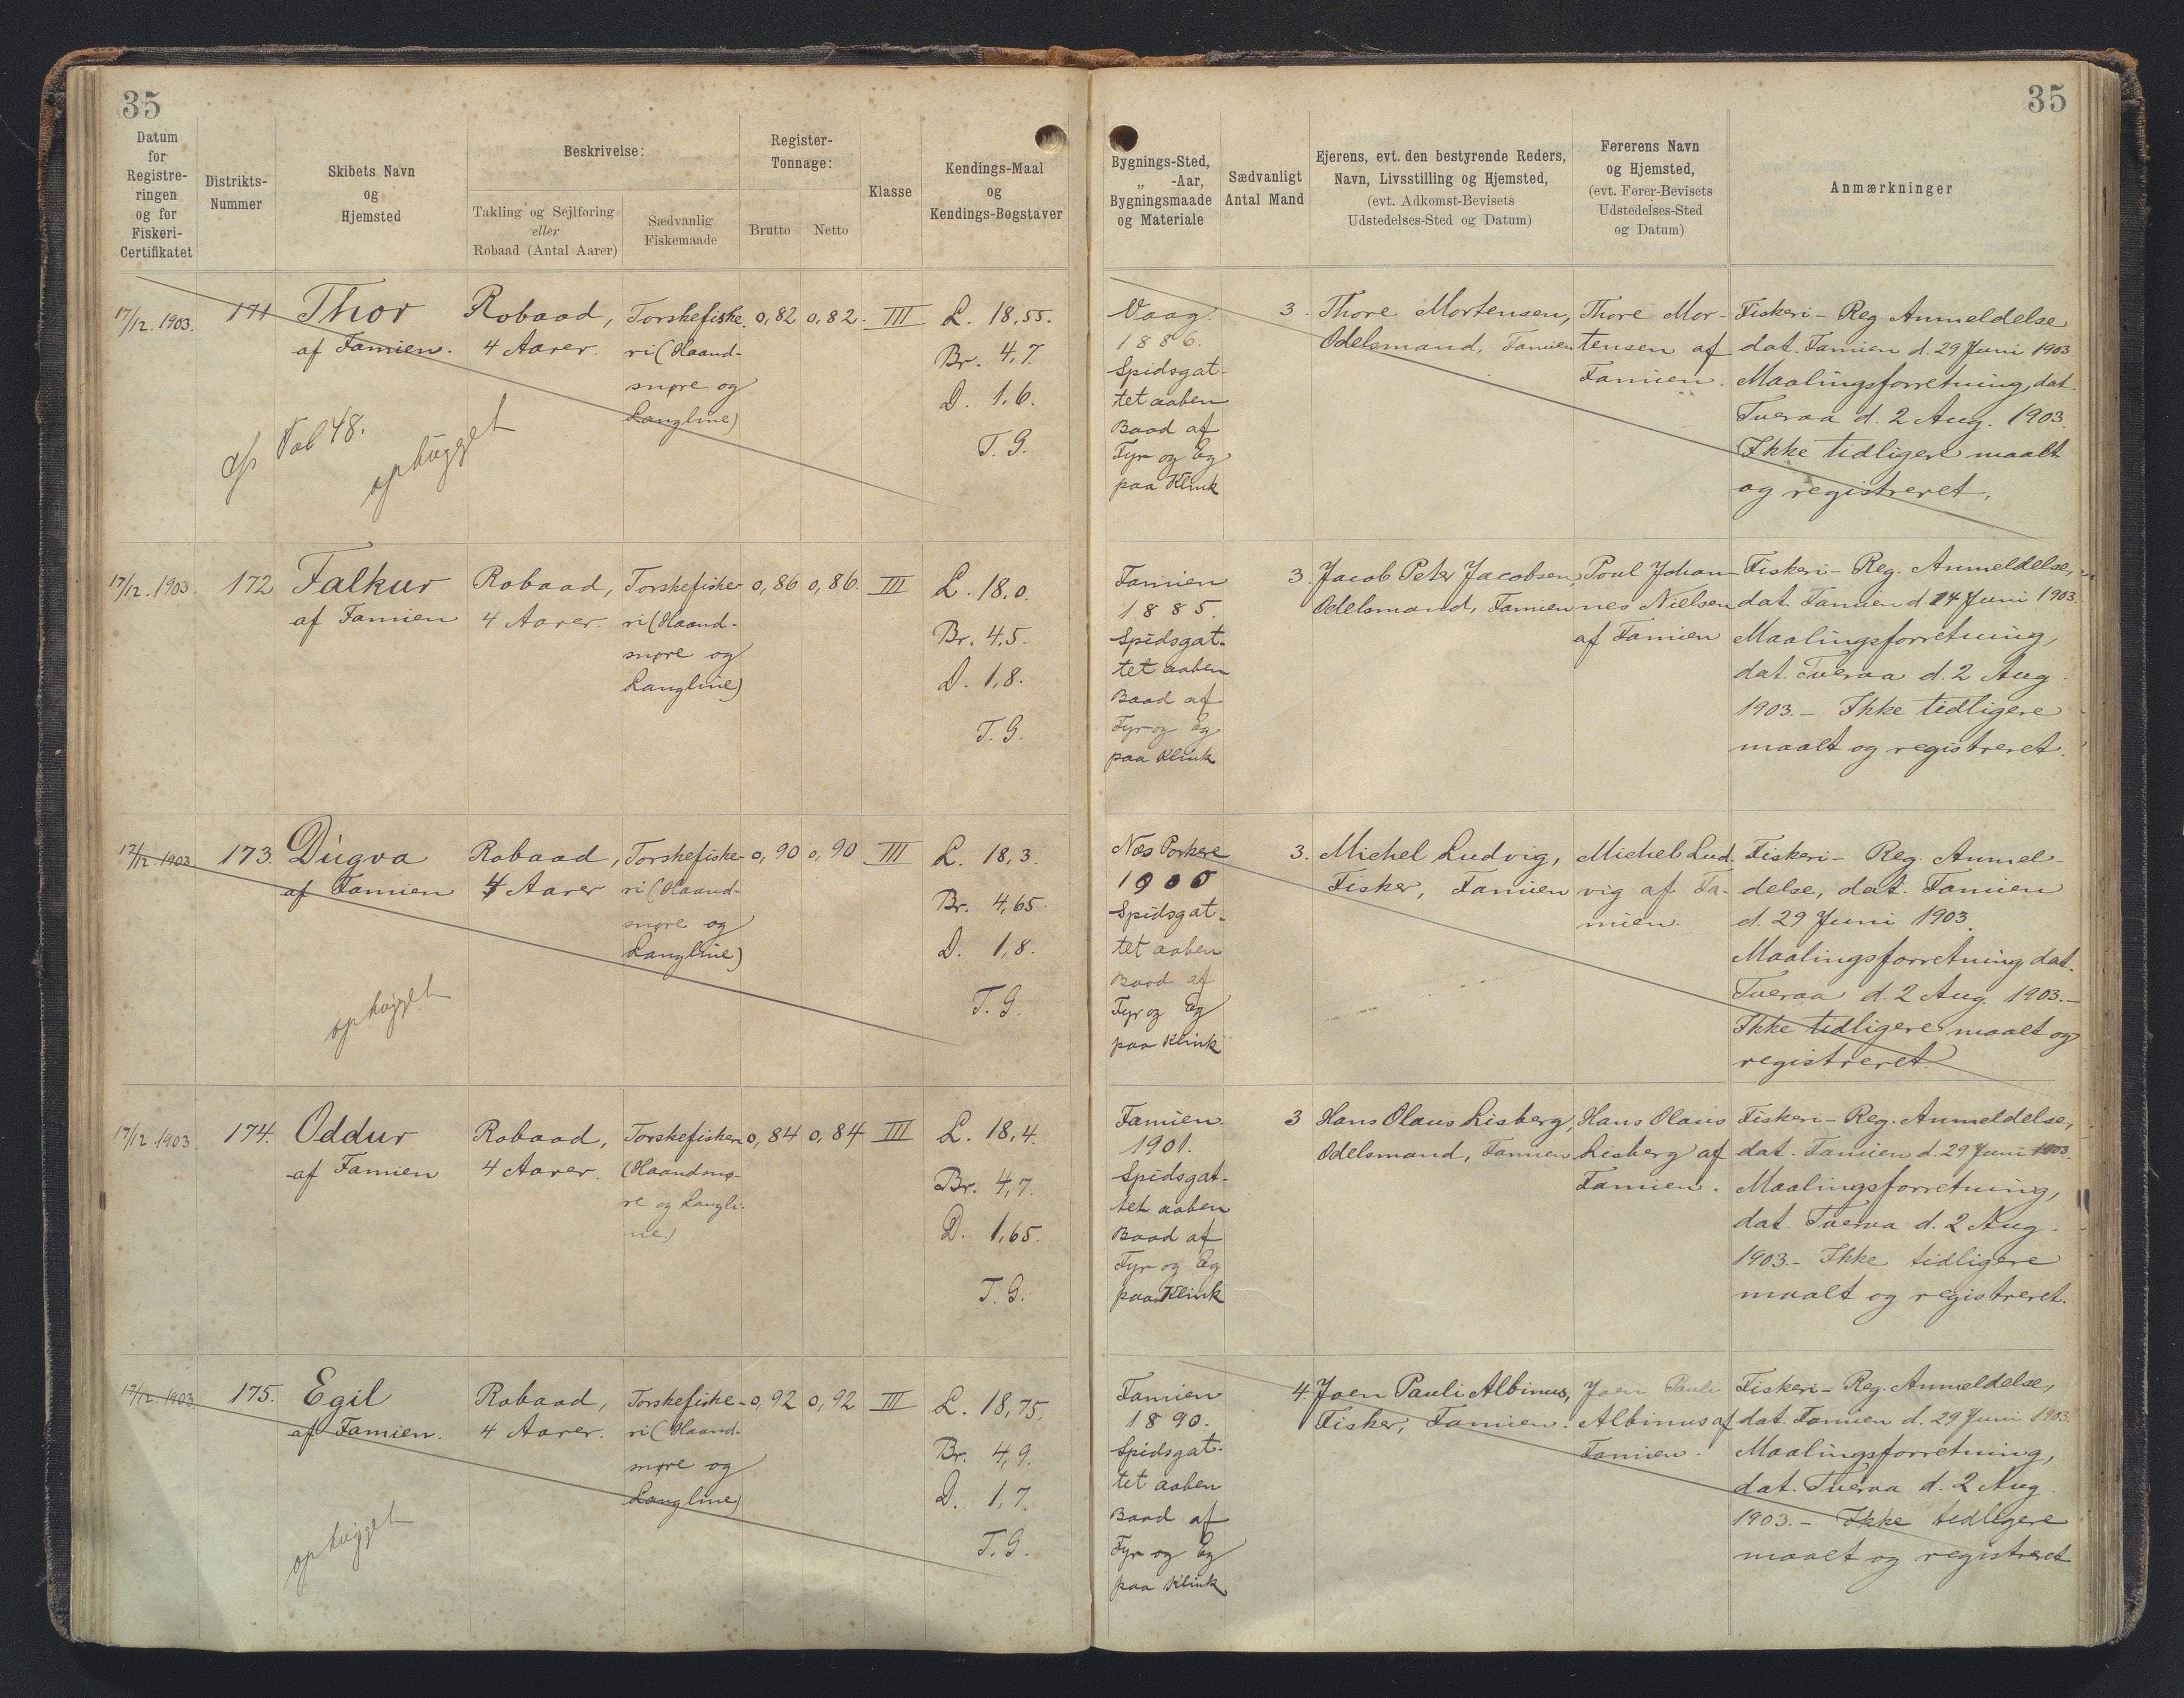 35
35
Datum
for
Registre-
ringen
og for
Fiskeri-
Certifikatet
Distrikts-
Nummer
Skibets Navn
og
Hjemsted
Beskrivelse:
Takling og Sejlføring
eller
Robaad (Antal Aarer)
Sædvanlig
Fiskemaade
Register-
Tonnage:
Brutto
Netto
Klasse
Kendings-Maal
og
Kendings-Bogstaver
Bygnings-Sted,
„ -Aar,
Bygningsmaade
og Materiale
Sædvanligt
Antal Mand
Ejerens, evt. den bestyrende Reders,
Navn, Livsstilling og Hjemsted,
(evt. Adkomst-Bevisets
Udstedelses-Sted og Datum)
Førerens Navn
og Hjemsted,
(evt. Fører-Bevisets
Udstedelses-Sted
og Datum)
Anmærkninger
17/12. 1903.
171
Thor
af Famien.
Robaad,
4 Aarer.
Torskefiske
ri (Haand-
snøre og
Langline)
0,82
0,82.
III
L. 18,55.
Br. 4,7.
D. 1,6.
T. G.
ophugget
Vaag.
1886.
Spidsgat-
tet aaben
Baad af
Fyr og Eg
paa Klink
3.
Thore Mortensen,
Odelsmand, Famien
Thore Mor-
tensen af
Famien.
Fiskeri- Reg. Anmeldelse
dat. Famien d. 29 Juni 1903.
Maalingsforretning, dat.
Tveraa d. 2 Aug. 1903.
Ikke tidligere maalt
og registreret.
17/12. 1903.
172
Falkur
af Famien
Robaad,
4 Aarer.
Torskefiske-
ri (Haand-
snøre og
Langline)
0,86
0,86.
III
L. 18,0.
Br. 4,5.
D. 1,8.
T. G.
Famien
1885.
Spidsgat-
tet aaben
Baad af
Fyr og Eg
paa Klink
3.
Jacob Peter Jacobsen,
Odelsmand, Famien
Poul Johan-
nes Nielsen
af Famien
Fiskeri- Reg. Anmeldelse,
dat. Famien d. 14 Juni 1903.
Maalingsforretning,
dat. Tveraa d. 2 Aug.
1903.- Ikke tidligere
maalt og registreret.
17/12. 1903.
173.
Dúgva
af Famien
Robaad,
4 Aarer
Torskefiske-
ri (Haand-
snøre og
Langline)
0,90
0,90
III
L. 18,3.
Br. 4,65.
D. 1,8.
T. G.
ophugget
Næs Porkere
1900
Spidsgat-
tet aaben
Baad af
Fyr og Eg
paa Klink
3.
Michel Ludvig,
Fisker, Famien
Michel Lud-
vig af Fa-
mien.
Fiskeri- Reg. Anmel-
delse, dat. Famien
d. 29 Juni 1903.
Maalingsforretning dat.
Tveraa d. 2 Aug. 1903.-
Ikke tidligere maalt og
registreret.
17/12 1903
174.
Oddur
af Famien
Robaad,
4 Aarer.
Torskefiskeri
(Haandsnø-
re og Langli-
ne.)
0,84
0,84
III
L. 18,4.
Br. 4,7.
D. 1,65.
T. G.
Famien.
1901.
Spidsgat-
tet aaben
Baad af
Fyr og Eg
paa Klink
3
Hans Olaus Lisberg,
Odelsmand, Famien
Hans Olaus
Lisberg af
Famien.
Fiskeri- Reg. Anmeldelse,
dat. Famien d. 29 Juni 1903.
Maalingsforretning,
dat. Tveraa d. 2 Aug.
1903.- Ikke tidligere
maalt og registreret.
17/12. 1903.
175.
Egil
af Famien.
Robaad,
4 Aarer.
Torskefiske-
ri (Haand-
snøre og
Langline)
0,92
0,92
III
L. 18,75.
Br. 4,9.
D. 1,7.
T. G.
ophugget
Famien
1890.
Spidsgat-
tet aaben
Baad af
Fyr og Eg
paa Klink
4.
Joen Pauli Albinus,
Fisker, Famien.
Joen Pauli
Albinus af
Famien.
Fiskeri- Reg. Anmeldelse,
dat. Famien d. 29 Juni 1903.
Maalingsforretning,
dat. Tveraa d. 2 Aug.
1903.- Ikke tidligere
maalt og registreret